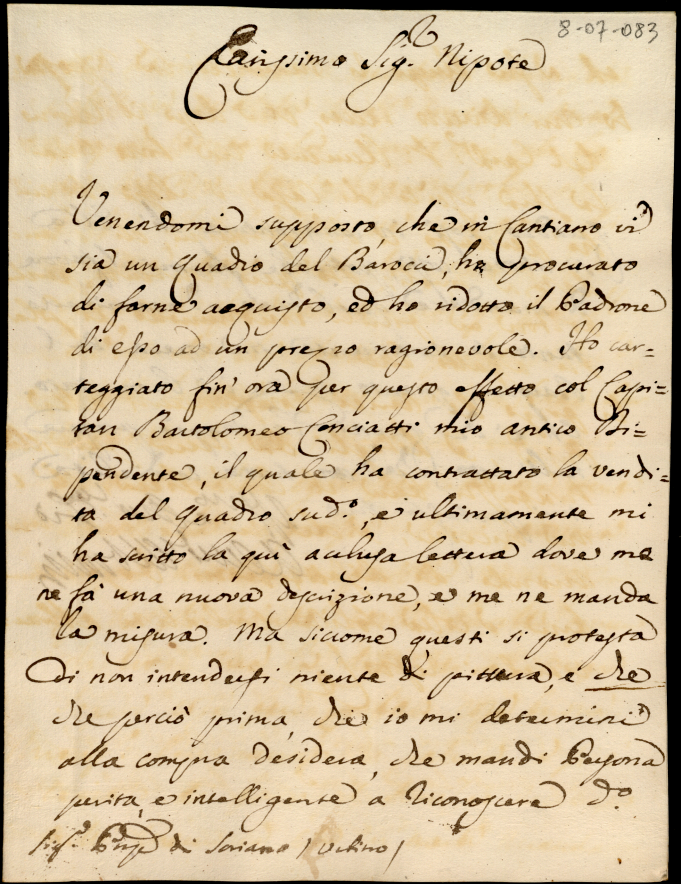 8-07-083
Carissimo Sig.r Nipote
Venendomi supposto, che in Cantiano vi
sia un Quadro del Barocci, ho procurato
di farne acquisto, ed ho ridotto il Padrone
di esso ad un prezzo ragionevole. Ho car=
teggiato fin' ora per questo effetto col Capi=
tan Bartolomeo Cenciatti mio antico Di=
pendente, il quale ha contrattato la vendi=
ta del Quadro sud.o, e ultimamente mi
ha scritto la quì acclusa lettera dove me
ne fà una nuova descrizione, e me ne manda
la misura. Ma siccome questi si protesta
di non intendersi niente di pittura, e che
che perciò prima, che io mi determini
alla compra desidera, che mandi Persona
perita, e intelligente a riconoscere d.o
Sig.r di Soriano (Urbino)